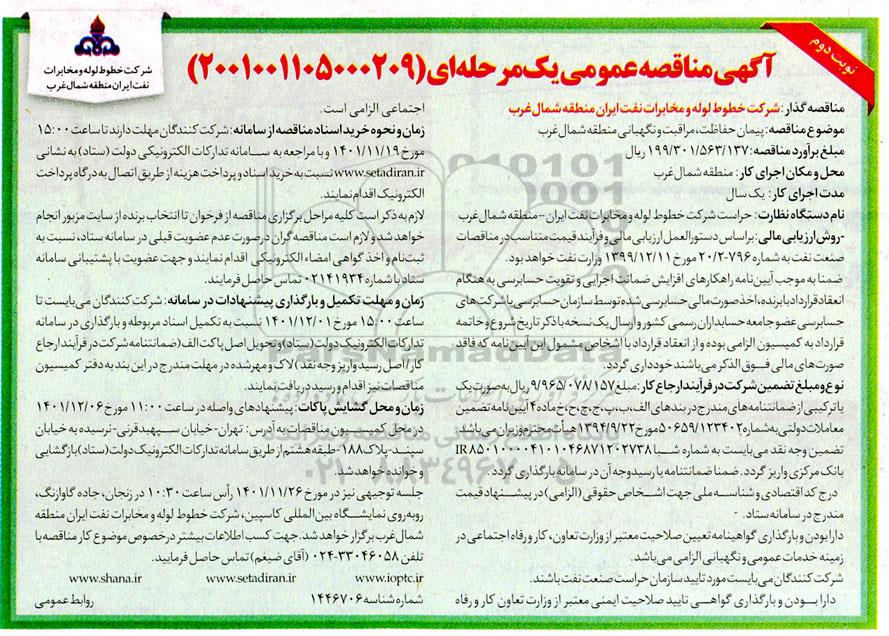 نوبت دوم
شرکت خطوط لوله و مخابرات
نفت ایران منطقه شمال غرب
آگهی مناقصه عمومی یک مرحله‌ای (۲۰۰۱۰۰۱۱۰۵۰۰۰۲۰۹)
مناقصه گذار: شرکت خطوط لوله و مخابرات نفت ایران منطقه شمال غرب
موضوع مناقصه: پیمان حفاظت، مراقبت و نگهبانی منطقه شمال غرب
مبلغ برآورد مناقصه: ۱۹۹/۳۰۱/۵۶۳/۱۳۷ ریال
محل و مکان اجرای کار: منطقه شمال غرب
مدت اجرای کار: یک سال
نام دستگاه نظارت: حراست شرکت خطوط لوله و مخابرات نفت ایران – منطقه شمال غرب
-روش ارزیابی مالی: براساس دستورالعمل ارزیابی مالی و فرآیند قیمت متناسب در مناقصات
صنعت نفت به شماره ۷۹۶-۲۰/۲ مورخ ۱۳۹۹/۱۲/۱۱ وزارت نفت خواهد بود.
ضمنا به موجب آیین نامه راهکارهای افزایش ضمانت اجرایی و تقویت حسابرسی به هنگام
انعقاد قرارداد با برنده، اخذ صورت مالی حسابرسی شده توسط سازمان حسابرسی یا شرکت های
حسابرسی عضو جامعه حسابداران رسمی کشور و ارسال یک نسخه با ذکر تاریخ شروع و خاتمه
قرارداد به کمیسیون الزامی بوده و از انعقاد قرارداد با اشخاص مشمول این آیین نامه که فاقد
صورت های مالی فوق الذکر می باشند خودداری گردد.
نوع و مبلغ تضمین شرکت در فرآیند ارجاع کار: مبلغ ۹/۹۶۵/۰۷۸/۱۵۷ ریال به صورت یک
یا ترکیبی از ضمانتنامه های مندرج در بندهای الف، ب، پ، ج، چ، ح، خ ماده ۴ آیین نامه تضمین
معاملات دولتی به شماره ۱۲۳۴۰۲/ت۵۰۶۵۹ مورخ ۱۳۹۴/۹/۲۲ هیأت محترم وزیران می باشد.
تضمین وجه نقد می بایست به شماره شبا IR ۸۵۰۱۰۰۰۰۴۱۰۱۰۴۶۸۷۱۲۰۲۷۳۸
بانک مرکزی واریز گردد. ضمنا ضمانتنامه یا رسید وجه آن در سامانه بارگذاری گردد.
درج کد اقتصادی و شناسه ملی جهت اشخاص حقوقی (الزامی) در پیشنهاد قیمت
مندرج در سامانه ستاد.
دارا بودن و بارگذاری گواهینامه تعیین صلاحیت معتبر از وزارت تعاون، کار و رفاه اجتماعی در
زمینه خدمات عمومی و نگهبانی الزامی می باشد.
شرکت کنندگان می بایست مورد تایید سازمان حراست صنعت نفت باشند.
دارا بودن و بارگذاری گواهی تایید صلاحیت ایمنی معتبر از وزارت تعاون کار و رفاه
اجتماعی الزامی است.
زمان و نحوه خرید اسناد مناقصه از سامانه: شرکت کنندگان مهلت دارند تا ساعت ۱۵:۰۰
مورخ ۱۴۰۱/۱۱/۱۹ و با مراجعه به سامانه تدارکات الکترونیکی دولت (ستاد) به نشانی
www.setadiran.ir نسبت به خرید اسناد و پرداخت هزینه از طریق اتصال به درگاه پرداخت
الکترونیک اقدام نمایند.
لازم به ذکر است کلیه مراحل برگزاری مناقصه از فرخوان تا انتخاب برنده از سایت مزبور انجام
خواهد شد و لازم است مناقصه گران درصورت عدم عضویت قبلی در سامانه ستاد، نسبت به
ثبت نام و اخذ گواهی امضاء الکترونیکی اقدام نمایند و جهت عضویت با پشتیبانی سامانه
ستاد با شماره ۰۲۱۴۱۹۳۴ تماس حاصل فرمایند.
زمان و مهلت تکمیل و بارگذاری پیشنهادات در سامانه: شرکت کنندگان می بایست تا
ساعت ۱۵:۰۰ مورخ ۱۴۰۱/۱۲/۰۱ نسبت به تکمیل اسناد مربوطه و بارگذاری در سامانه
تدارکات الکترونیک دولت (ستاد) و تحویل اصل پاکت الف (ضمانتنامه شرکت در فرآیند ارجاع
کار/ اصل رسید واریز وجه نقد) لاک و مهر شده در مهلت مندرج در این بند به دفتر کمیسیون
مناقصات نیز اقدام و رسید دریافت نمایند.
زمان و محل گشایش پاکات: پیشنهادهای واصله در ساعت ۱۱:۰۰ مورخ ۱۴۰۱/۱۲/۰۶
در محل کمیسیون مناقصات به آدرس: تهران-خیابان سپهبد قرنی-نرسیده به خیابان
سپند-پلاک ۱۸۸-طبقه هشتم از طریق سامانه تدارکات الکترونیک دولت (ستاد) بازگشایی
و خوانده خواهد شد.
جلسه توجیهی نیز در مورخ ۱۴۰۱/۱۱/۲۶ رأس ساعت ۱۰:۳۰ در زنجان، جاده گاوازنگ،
روبه روی نمایشگاه بین المللی کاسپین، شرکت خطوط لوله و مخابرات نفت ایران منطقه
شمال غرب برگزار خواهد شد. جهت کسب اطلاعات بیشتر درخصوص موضوع کار مناقصه با
تلفن ۳۳۰۴۶۰۵۸-۰۲۴ (آقای ضیغم) تماس حاصل فرمایید.
www.ioptc.ir www.setadiran.ir www.shana.ir
شماره شناسه ۱۴۴۶۷۰۶ روابط عمومی
ParsNamadData